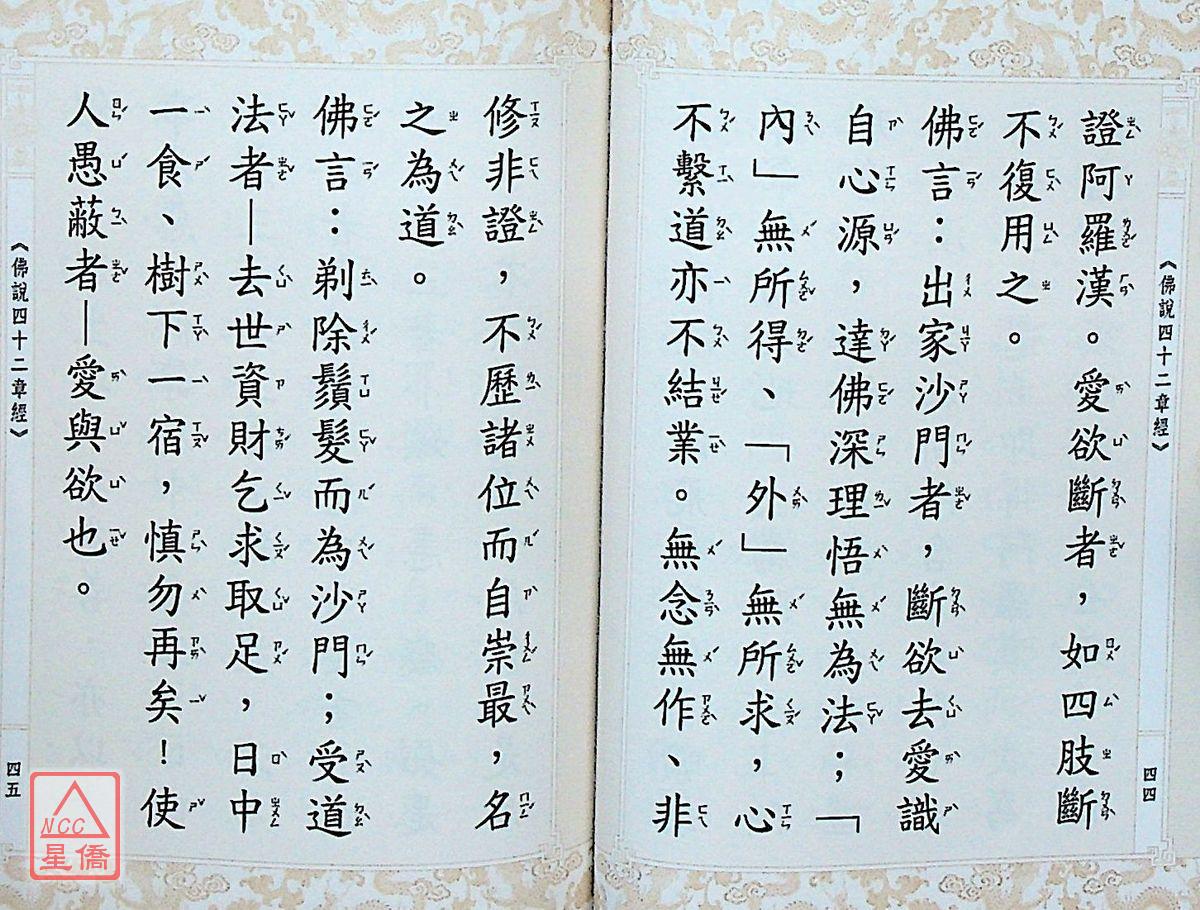 《佛說四十二章經》
四四
證阿羅漢。愛欲斷者，如四肢斷
不復用之。
佛言：出家沙門者，斷欲去愛識
自心源，達佛深理悟無為法；「
內」無所得、「外」無所求，心
不繫道亦不結業。無念無作、非
修非證，不歷諸位而自崇最，名
之為道。
佛言：剃除鬚髮而為沙門；受道
法者—去世資財乞求取足，日中
一食、樹下一宿，慎勿再矣！使
人愚蔽者—愛與欲也。
《佛說四十二章經》
四五
NCC
星僑